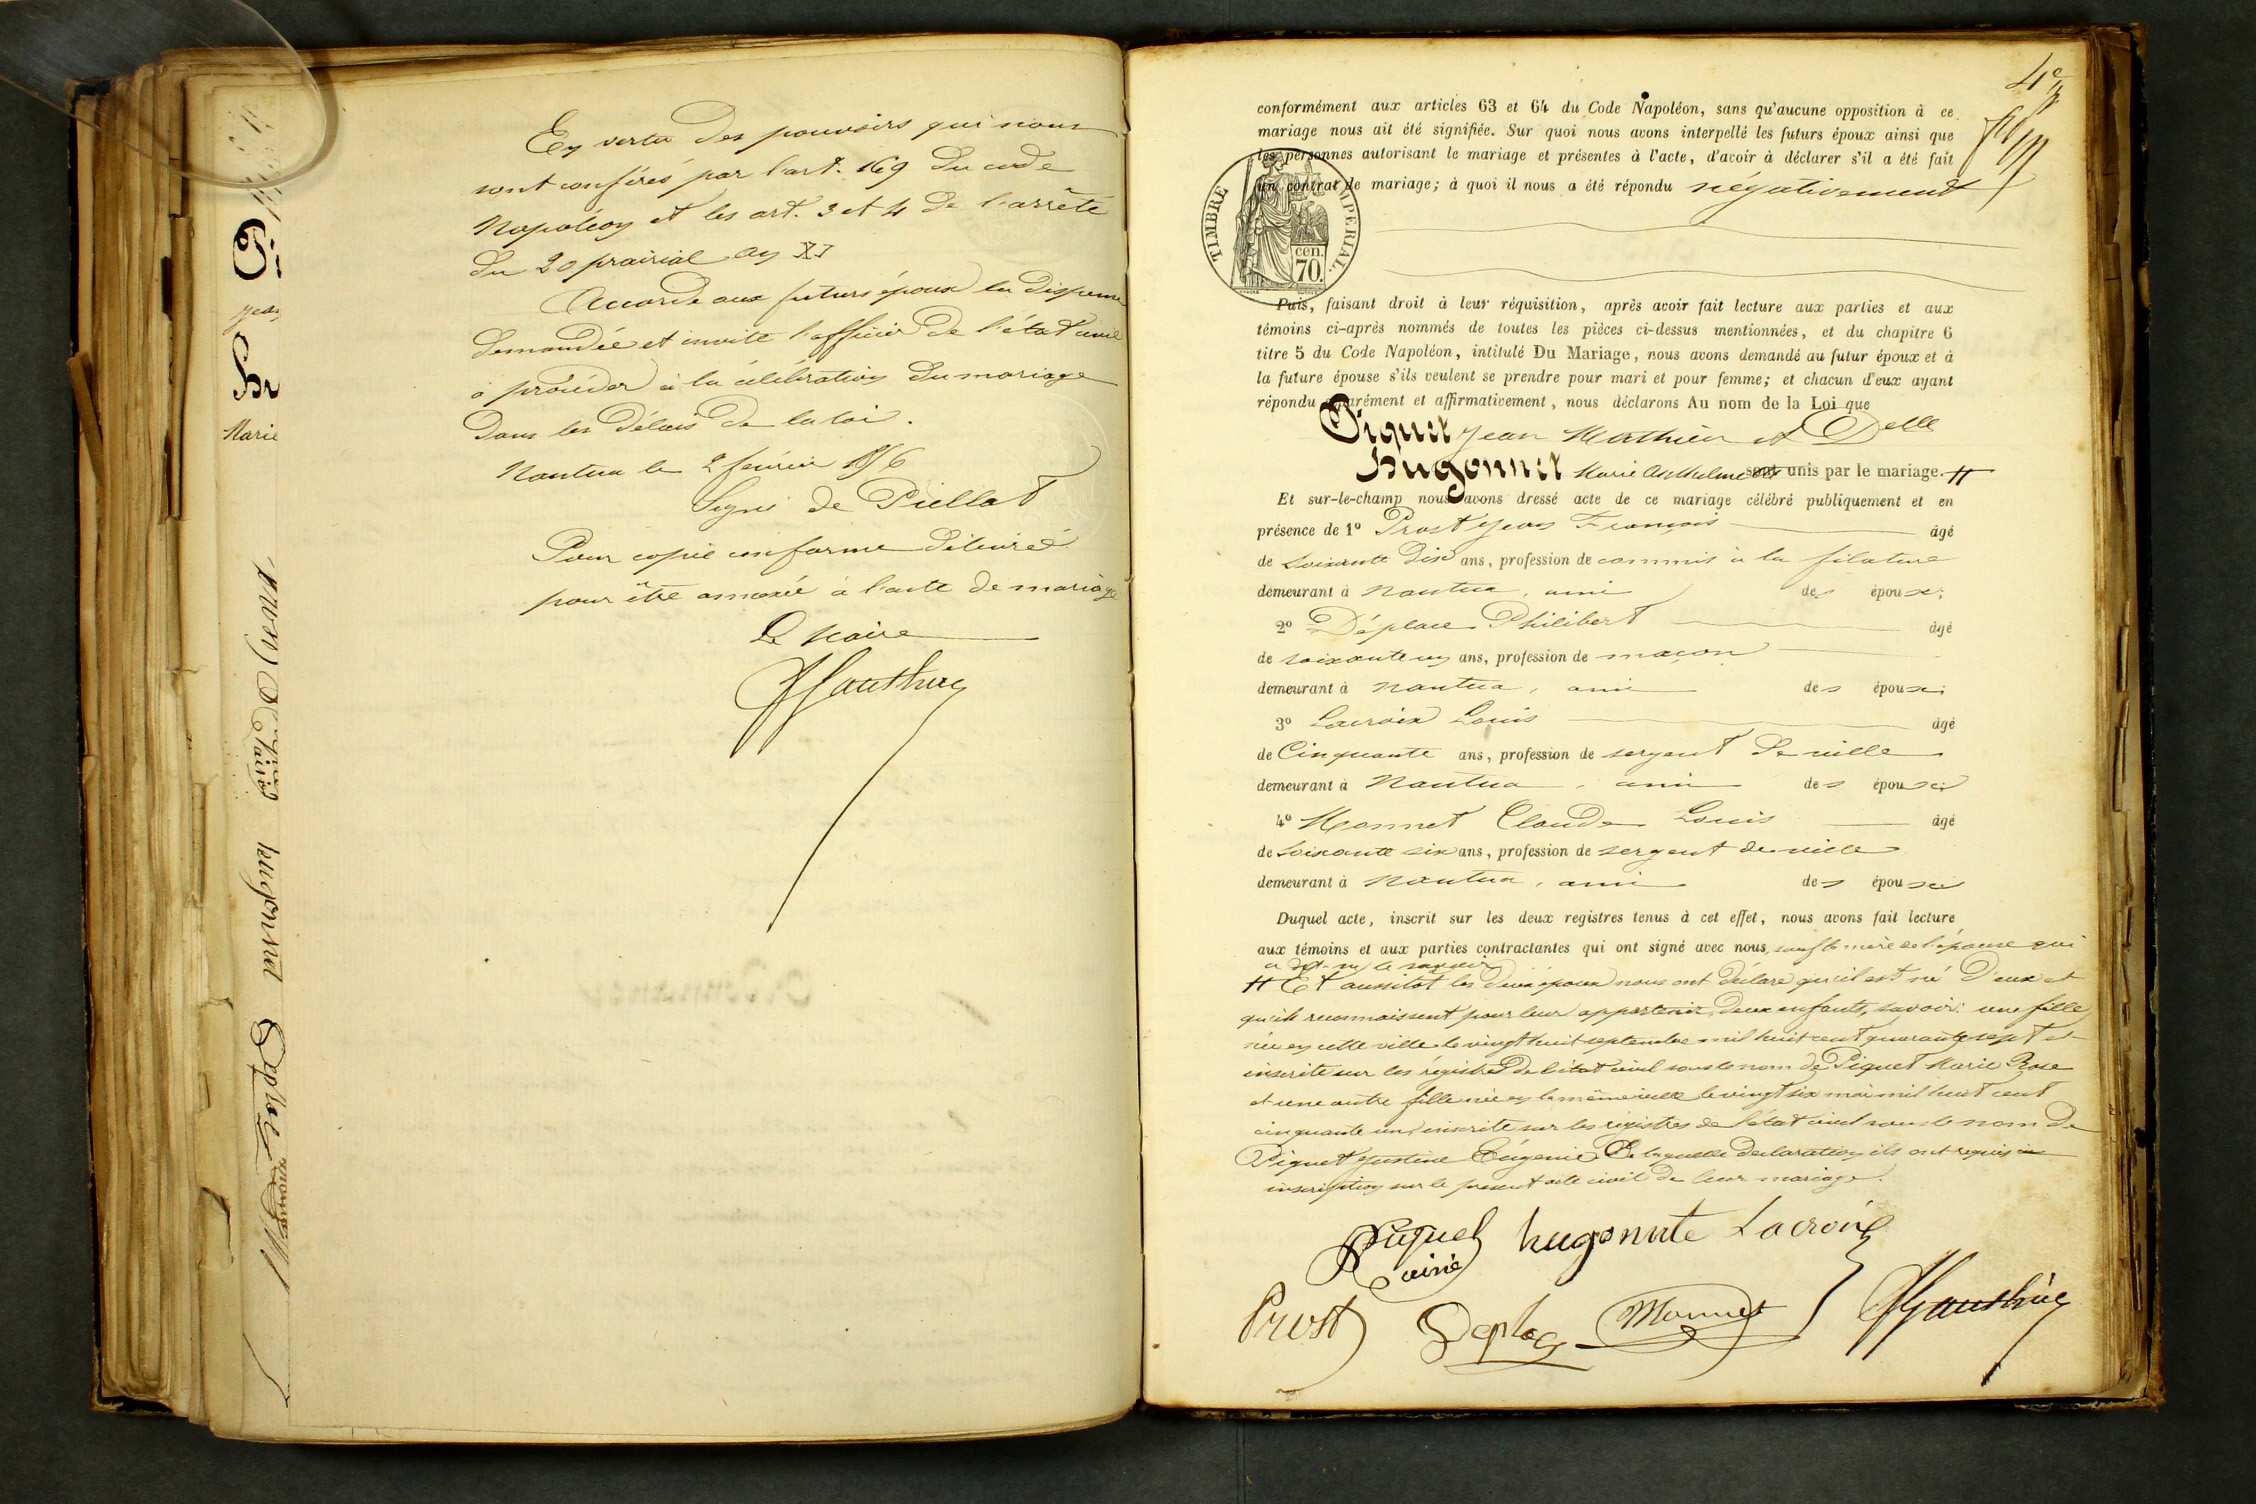 En vertu des pouvoirs qui nous
sont conférés par l'art. 169 du code
Napoléon et les art. 3 et 4 de l'arrêté
du 20 prairial an XI
Accorde aux futurs époux la dispense
demandée et invite l'officier de l'état civil
à procéder à la célébration du mariage
dans les délais de la loi.
Nantua le 2 février
Signé de Piellat
Pour copie conforme délivrée
pour être annexée à l'acte de mariage
Le Maire
Jean
Marie
hugonnet
4e
conformément aux articles 63 et 64 du Code Napoléon, sans qu'aucune opposition à ce
mariage nous ait été signifiée. Sur quoi nous avons interpellé les futurs époux ainsi que
les personnes autorisant le mariage et présentes à l'acte, d'avoir à déclarer s'il a été fait
un contrat de mariage; à quoi il nous a été répondu négativement
TIMBRE IMPERIAL.
cen.
70.
Puis, faisant droit à leur réquisition, après avoir fait lecture aux parties et aux
témoins ci-après nommés de toutes les pièces ci-dessus mentionnées, et du chapitre 6
titre 5 du Code Napoléon, intitulé Du Mariage, nous avons demandé au futur époux et à
la future épouse s'ils veulent se prendre pour mari et pour femme; et chacun d'eux ayant
répondu séparément et affirmativement, nous déclarons Au nom de la Loi que
Piquet Jean Mathieu et Delle
Hugonnet Marie Anthelmette sont unis par le mariage. #
Et sur-le-champ nous avons dressé acte de ce mariage célébré publiquement et en
présence de 1o Prost Jean François âgé
de soixante dix ans, profession de commis à la filature
demeurant à Nantua, ami des époux;
2o Déplace Philibert âgé
de soixante un ans, profession de maçon
demeurant à Nantua, ami des époux;
3o Lacroix Louis âgé
de Cinquante ans, profession de sergent de ville
demeurant à Nantua, ami des époux;
4o Monnet Claude Louis âgé
de soixante six ans, profession de sergent de ville
demeurant à Nantua, ami des époux
Duquel acte, inscrit sur les deux registres tenus à cet effet, nous avons fait lecture
aux témoins et aux parties contractantes qui ont signé avec nous, sauf la mère de l'épouse qui
a dit ne le savoir
# Et aussitôt les deux époux nous ont déclaré qu'il est né d'eux et
qu'ils reconnaissent pour leur appartenir deux enfants, savoir: une fille
née en cette ville le vingt huit septembre mil huit cent quarante sept et
inscrite sur les régistres de l'état civil sous le nom de Piquet Marie Rose
et une autre fille née en la même ville le vingt six mai mil huit cent
cinquante un, inscrite sur les régistres de l'état civil sous le nom de
Piquet Justine Eugénie De laquelle déclaration ils ont requis
inscription sur le présent acte civil de leur mariage.
Piquet hugonnete Lacroix
ainé
Prost Deplace Monnet